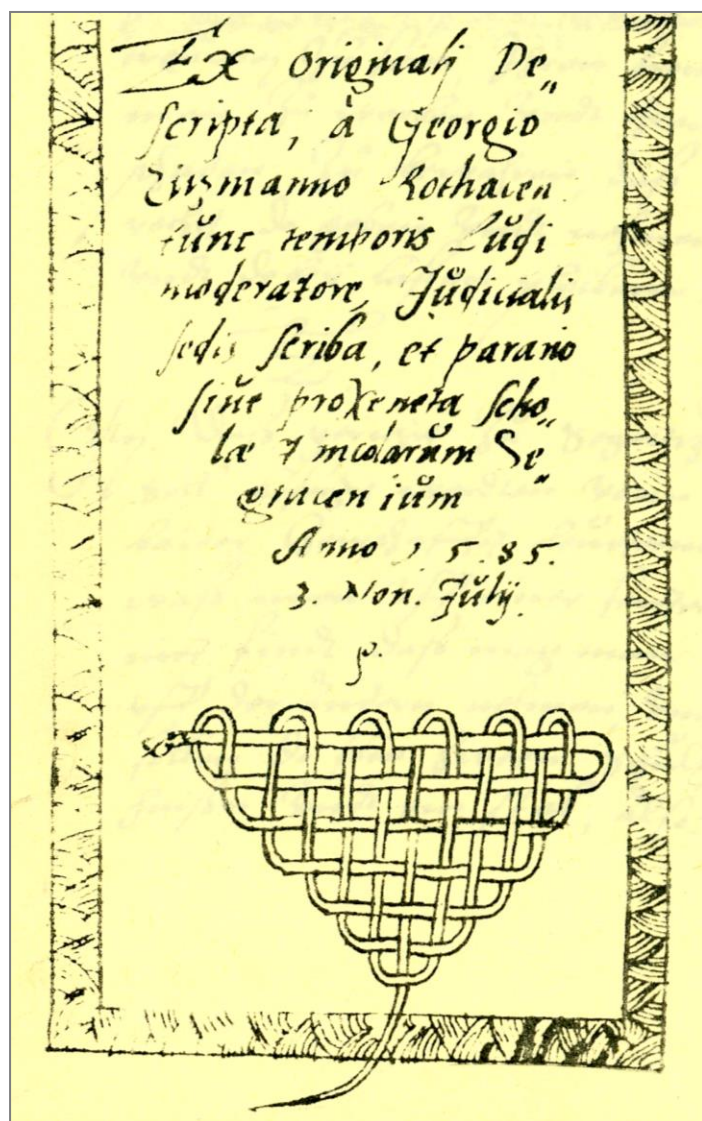 Ex originali De„
scripta, à Georgio
Ziŭzmanno Rothacen
tŭnc temporis Lŭdi
moderatore, Jŭdicialis
sedis scriba, et parario
siŭe proxeneta scho„
læ Se„
Anno 1 5. 85.
3. Non. Jŭlij